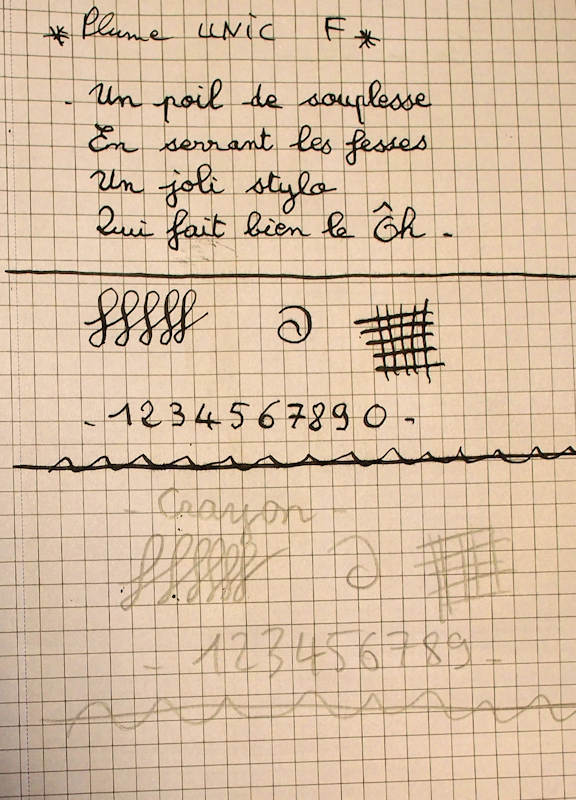 * Plume UNIC F *
- Un poil de souplesse
En serrant les fesses
Un joli stylo
Qui fait bien le Ôh -
- 1 2 3 4 5 6 7 8 9 0 -
- Crayon -
- 1 2 3 4 5 6 7 8 9 -